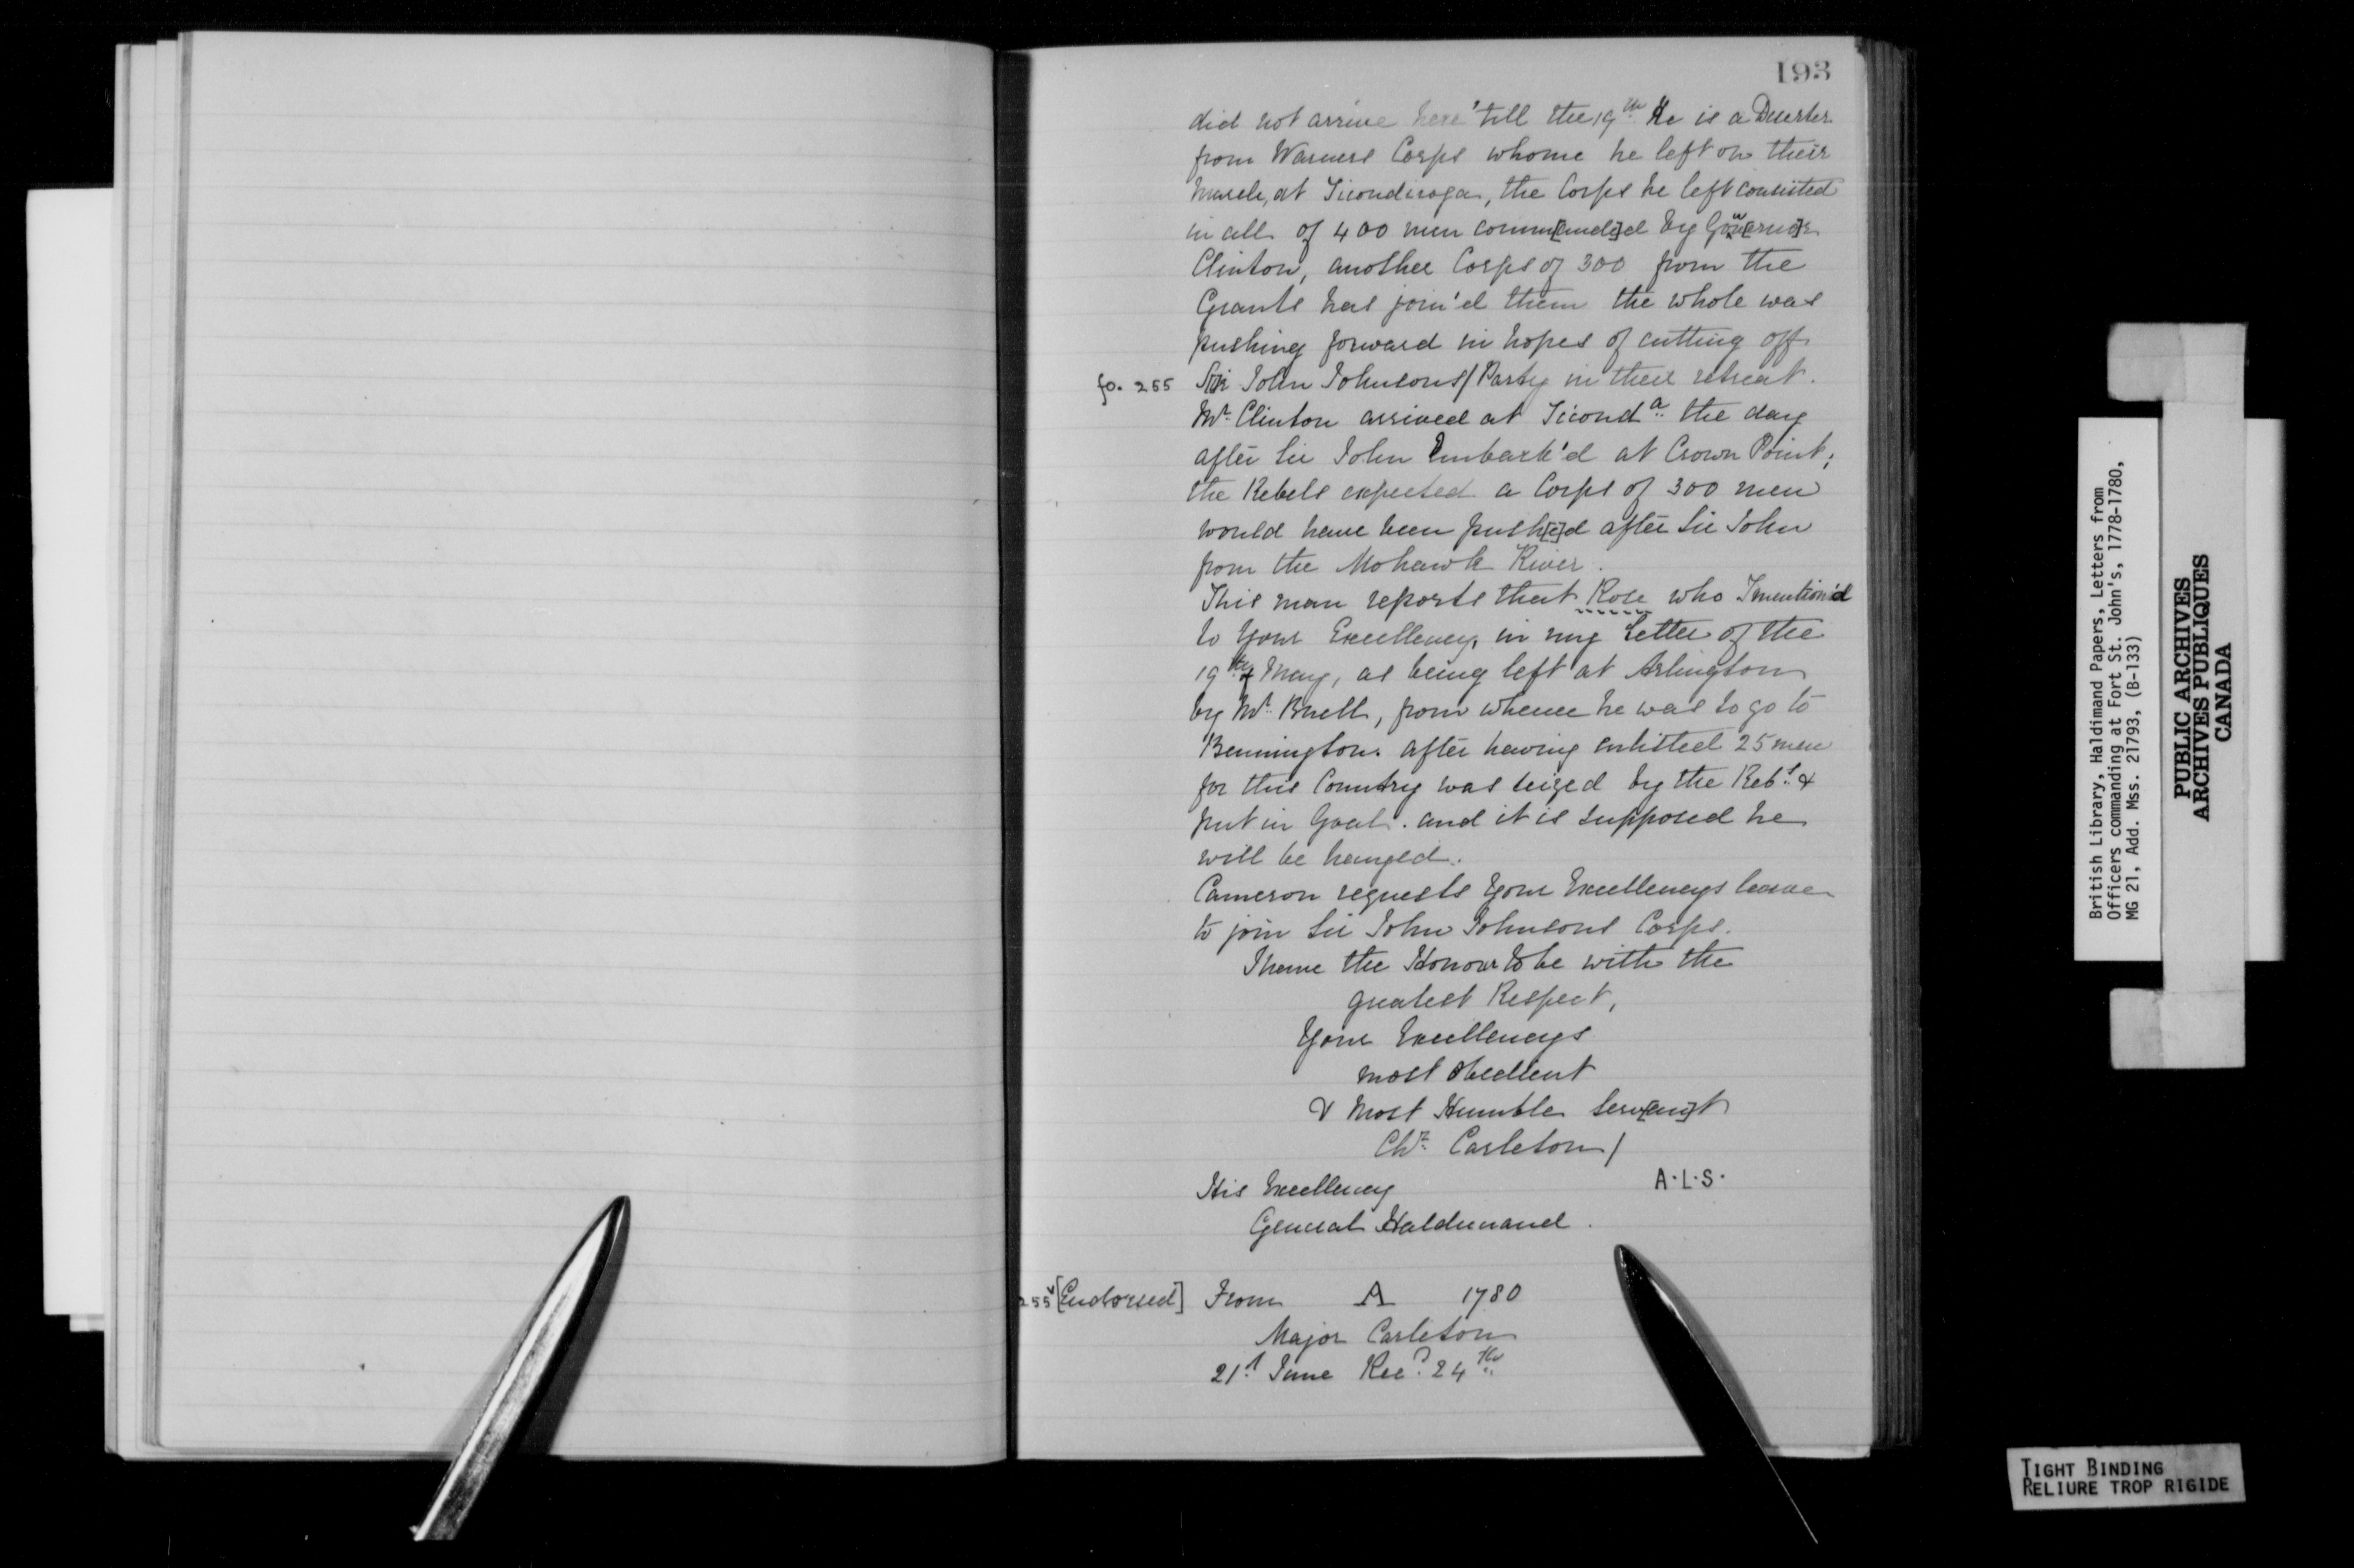 193
did not arrive here 'till the 19th He is a Deserter
from Warners Corps whome he left on their
March, at Ticonderoga, the Corps he left consisted
in all of 400 men comm[ande]d by Gov[erno]r
Clinton, another Corps of 300 from the
Grants has join'd them the whole was
pushing forward in hopes of cutting off
fo. 255 Sir John Johnsons/Party in their retreat.
Mr. Clinton arrived at Ticonda. the day
after Sir John Embark'd at Crown Point;
the Rebels expected a Corps of 300 men
would have been push[e]d after Sir John
from the Mohawk River.
This man reports that Rose who I mention'd
to Your Excellency, in my Letter of the
19th of May, as being left at Arlington
by Mr. Buell, from whence he was to go to
Bennington. after having enlisted 25 men
for this Country was seized by the Rebs. &
put in Goal. and it is supposed he
will be hanged.
Cameron requests Your Excellencys leave
to join Sir John Johnsons Corps.
I have the Honour to be with the
greatest Respect,
Your Excellencys
most obedient
& Most Humble Serv[an]t
Chr. Carleton/
His Excellency A.L.S.
General Haldimand.
255v [Endorsed] From A 1780
Major Carleton
21st June Recd. 24th
British Library, Haldimand Papers, Letters from
Officers commanding at Fort St. John's, 1778-1780,
MG 21, Add. Mss. 21793, (B-133)
PUBLIC ARCHIVES
ARCHIVES PUBLIQUES
CANADA
TIGHT BINDING
RELIURE TROP RIGIDE